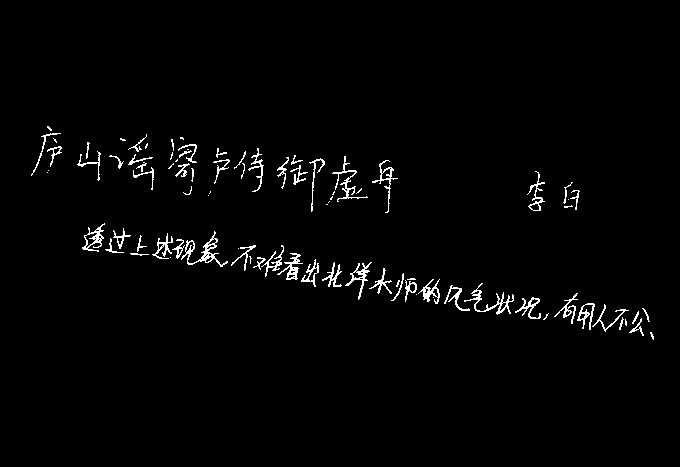 庐山谣寄卢侍御虚舟 李白
透过上述现象,不难看出北洋水师的风气状况,有用人不公、